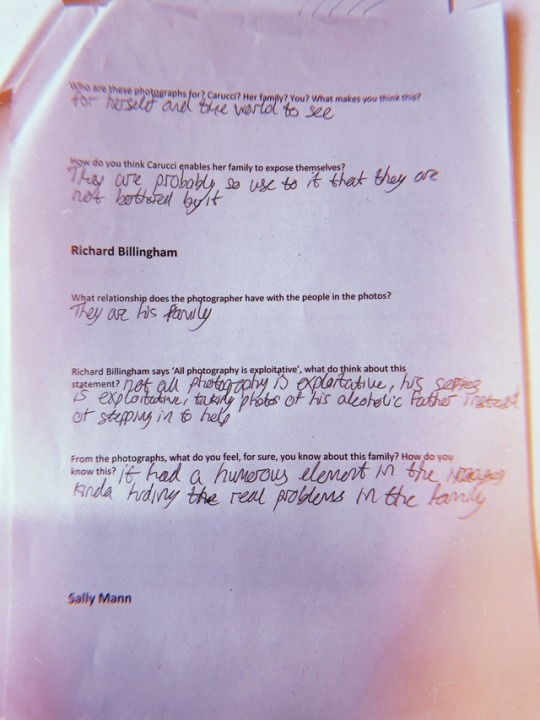 Who are these photographs for? Carucci? Her family? You? What makes you think this?
for herself and the world to see
How do you think Carucci enables her family to expose themselves?
They are probably so use to it that they are
not bothered by it
Richard Billingham
What relationship does the photographer have with the people in the photos?
They are his family
Richard Billingham says ‘All photography is exploitative’, what do think about this
statement? not all photography is exploitative, his series
is exploitative, taking photos of his alcoholic father instead
of stepping in to help
From the photographs, what do you feel, for sure, you know about this family? How do you
know this? it had a humerous element in the images
kinda hiding the real problems in the family
Sally Mann